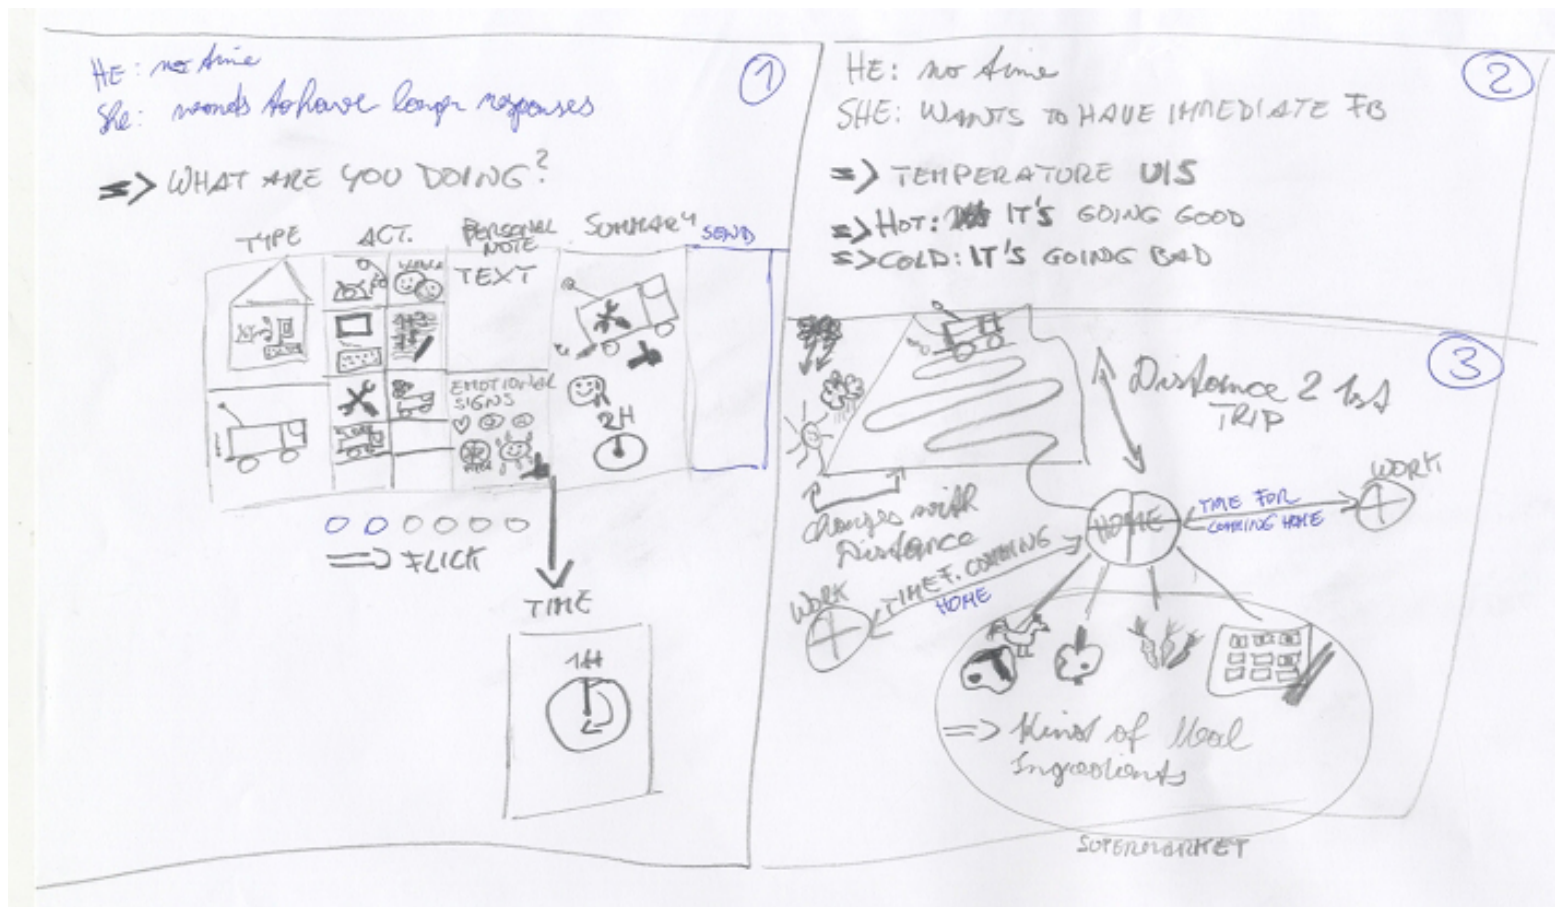 HE: no time
She: needs to have longer responses
1
=> WHAT ARE YOU DOING?
TYPE
ACT.
PERSONAL NOTE
SUMMARY
SEND
TEXT
EMOTIONAL SIGNS
2H
=> FLICK
TIME
1H
HE: no time
2
SHE: WANTS TO HAVE IMMEDIATE FB
=> TEMPERATURE UIS
=> HOT: IT'S GOING GOOD
=> COLD: IT'S GOING BAD
3
Distance 2 1st
TRIP
changes with
Distance
HOME
TIME FOR
COMMING HOME
WORK
WORK
TIME F. COMMING
HOME
=> Kind of Meal
Ingredients
SUPERMARKET